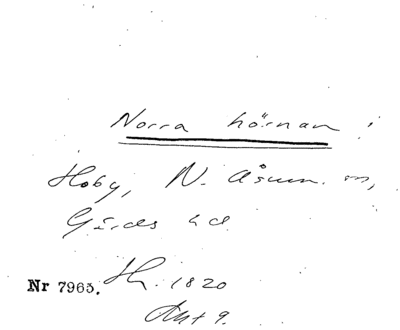 Norra hörnan!
Hoby, N. Åsum. sn,
Gärds hd
Nr 7965. H. 1820
Akt 9.